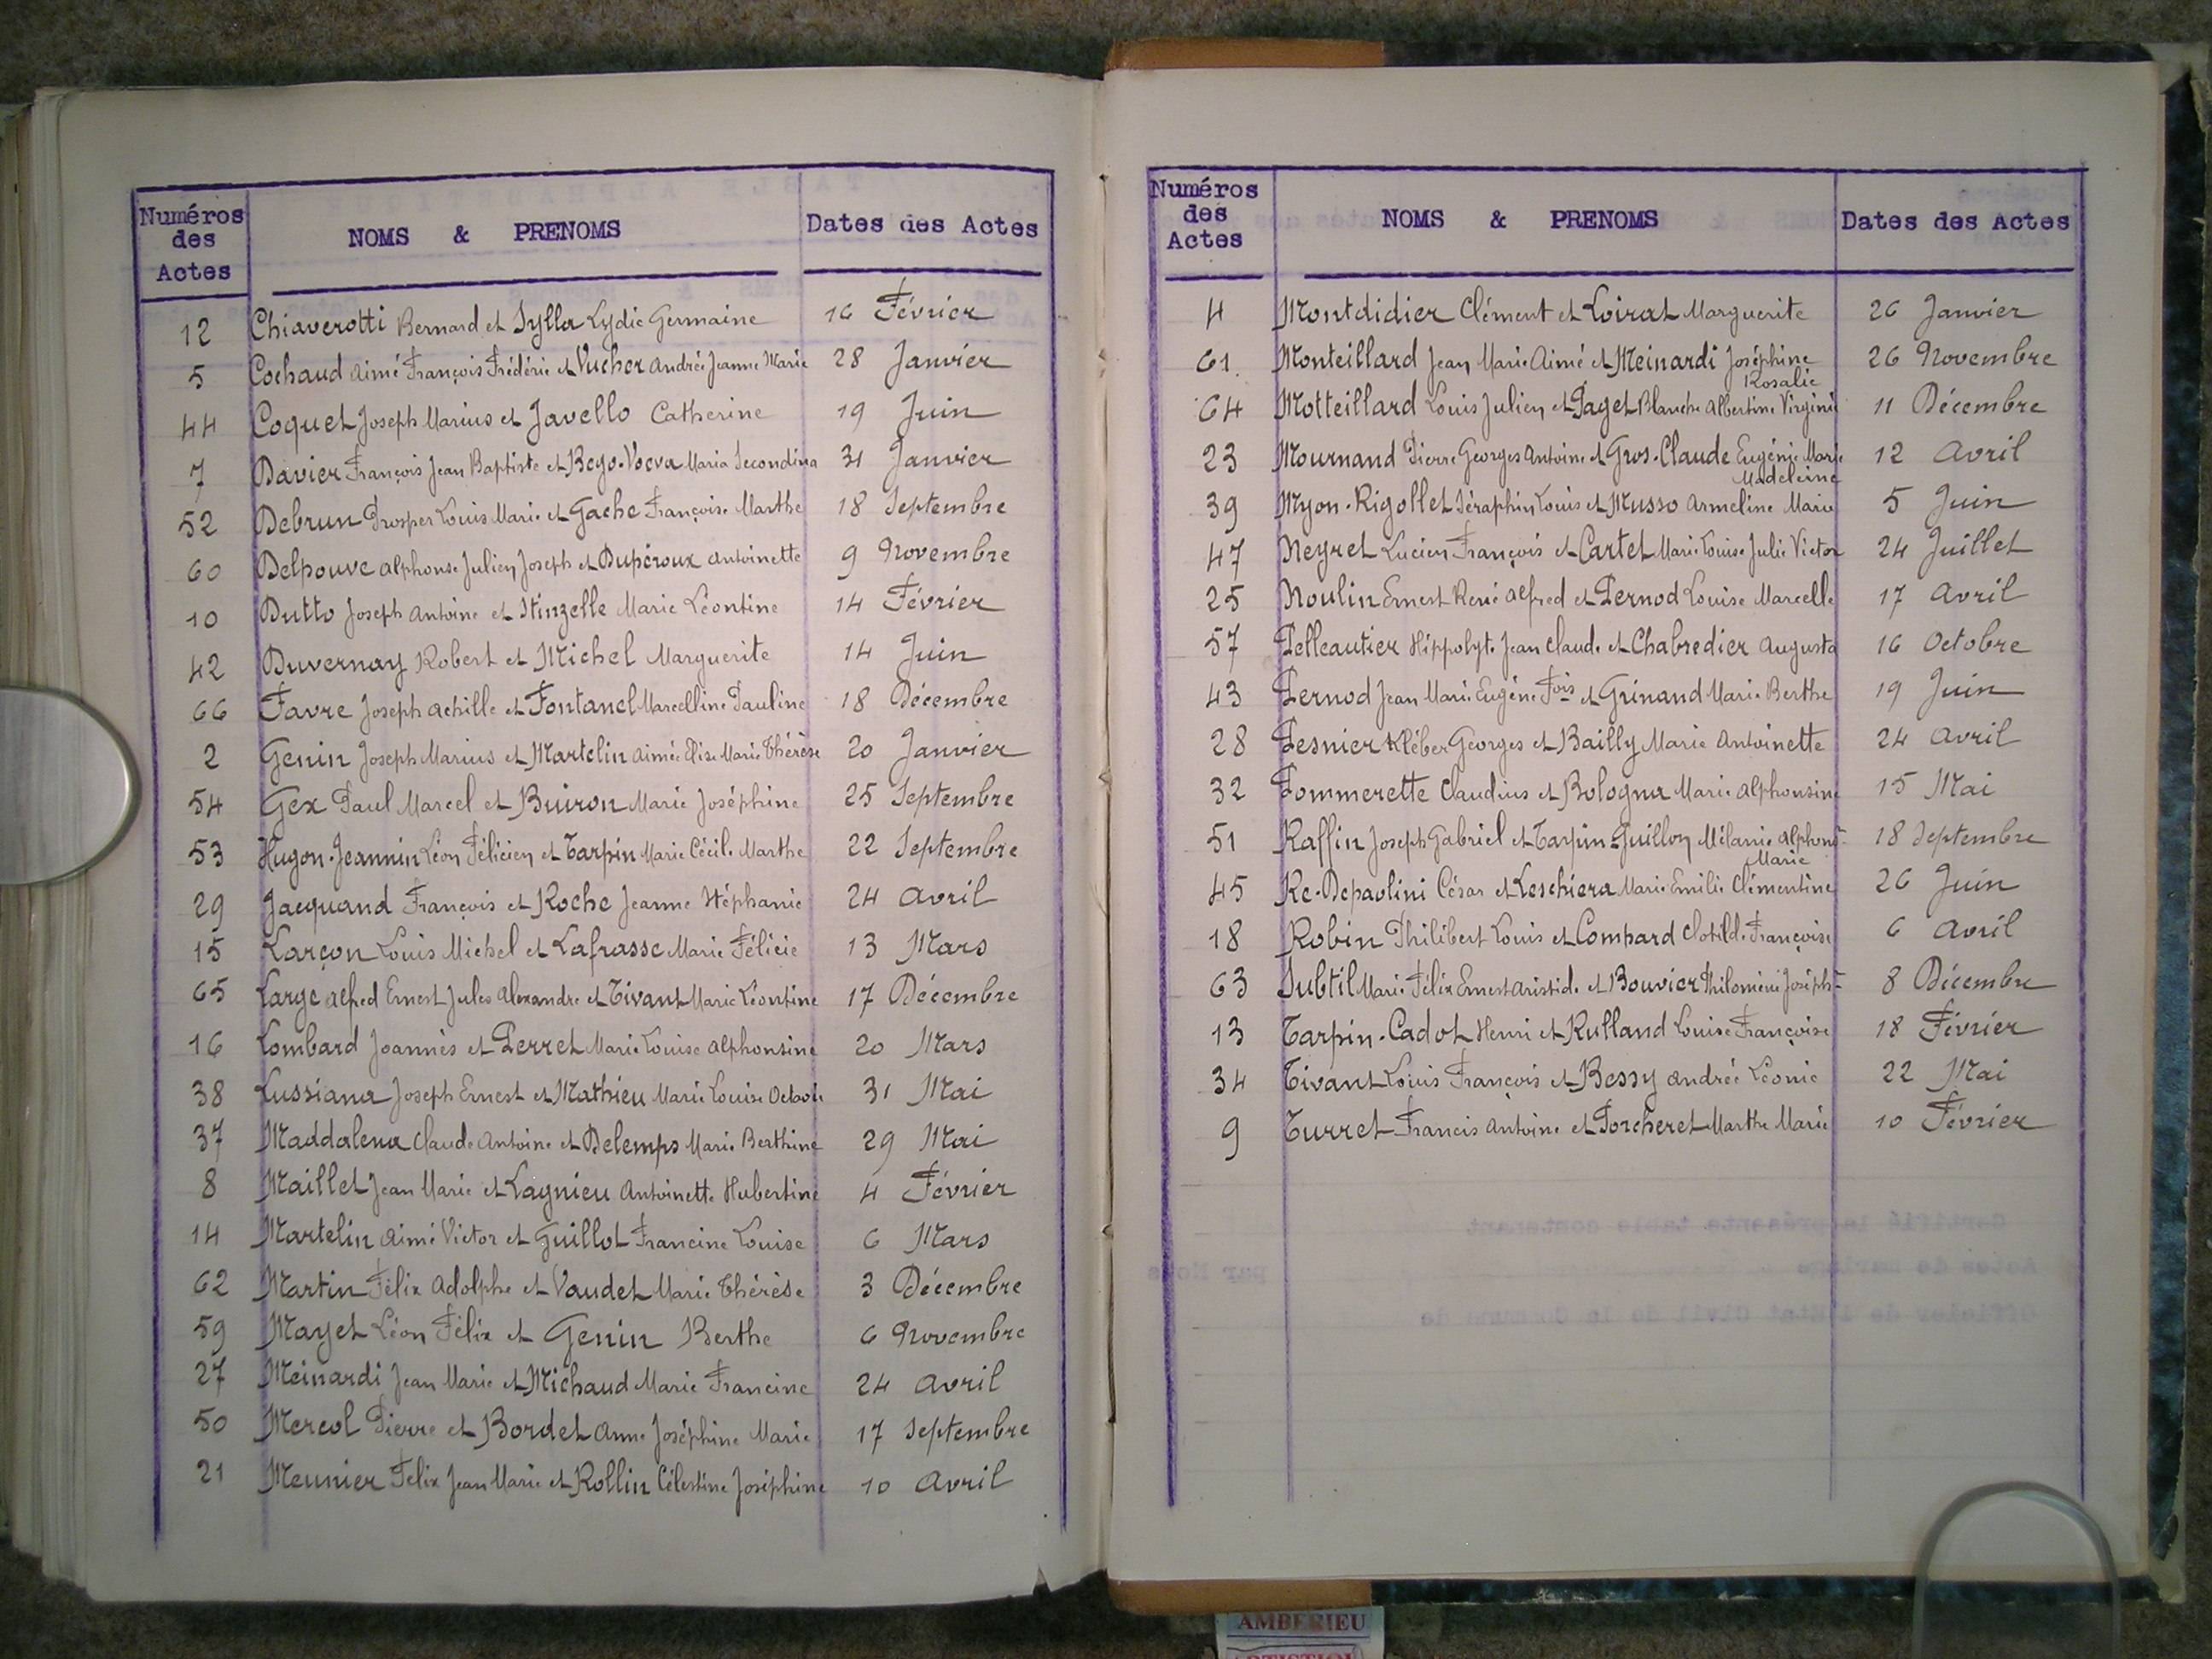 Numéros
des
Actes
NOMS & PRENOMS
Dates des Actes
12 Chiaverotti Bernard et Sylla Lydie Germaine 16 Février
5 Cochaud Aimé François Frédéric et Vucher Andrée Jeanne Marie 28 Janvier
44 Coquet Joseph Marius et Javello Catherine 19 Juin
7 Davier François Jean Baptiste et Rego-Voeva Maria Secondina 31 Janvier
52 Debrun Prosper Louis Marie et Gache Françoise Marthe 18 Septembre
60 Delpouve Alphonse Julien Joseph et Dupéroux Antoinette 9 Novembre
10 Dutto Joseph Antoine et Stinzelle Marie Léontine 14 Février
42 Duvernay Robert et Michel Marguerite 14 Juin
66 Favre Joseph Achille et Fontanel Marcelline Pauline 18 Décembre
2 Genin Joseph Marius et Martelin Aimée Elise Marie Thérèse 20 Janvier
54 Gex Paul Marcel et Buiron Marie Joséphine 25 Septembre
53 Hugon-Jeannin Léon Félicien et Tarpin Marie Cécile Marthe 22 Septembre
29 Jacquand François et Roche Jeanne Stéphanie 24 Avril
15 Larçon Louis Michel et Lafrasse Marie Félicie 13 Mars
65 Large Alfred Ernest Jules Alexandre et Tivant Marie Léontine 17 Décembre
16 Lombard Joannès et Perret Marie Louise Alphonsine 20 Mars
38 Lussiana Joseph Ernest et Mathieu Marie Louise Octavie 31 Mai
37 Maddalena Claude Antoine et Delemps Marie Berthine 29 Mai
8 Maillet Jean Marie et Lagnieu Antoinette Hubertine 4 Février
14 Martelin Aimé Victor et Guillot Francine Louise 6 Mars
62 Martin Félix Adolphe et Vaudet Marie Thérèse 3 Décembre
59 Mayet Léon Félix et Genin Berthe 6 Novembre
27 Meinardi Jean Marie et Michaud Marie Francine 24 Avril
50 Mercol Pierre et Bordet Anne Joséphine Marie 17 Septembre
21 Meunier Félix Jean Marie et Rollin Célestine Joséphine 10 Avril
Numéros
des
Actes
NOMS & PRENOMS
Dates des Actes
4 Montdidier Clément et Loirat Marguerite 26 Janvier
61. Monteillard Jean Marie Aimé et Meinardi Joséphine 26 Novembre
Rosalie
64 Motteillard Louis Julien et Paget Blanche Albertine Virginie 11 Décembre
23 Mournand Pierre Georges Antoine et Gros-Claude Eugénie Marie 12 Avril
Madeleine
39 Myon-Rigollet Séraphin Louis et Musso Armeline Marie 5 Juin
47 Neyret Lucien François et Cartet Marie Louise Julie Victor 24 Juillet
25 Noulin Ernest René Alfred et Pernod Louise Marcelle 17 Avril
57 Pelleautier Hippolyte Jean Claude et Chabredier Augusta 16 Octobre
43 Pernod Jean Marie Eugène Fois et Grinand Marie Berthe 19 Juin
28 Pesnier Kléber Georges et Bailly Marie Antoinette 24 Avril
32 Pommerette Claudius et Bologna Marie Alphonsine 15 Mai
51 Raffin Joseph Gabriel et Tarpin-Guillon Mélanie Alphons- 18 Septembre
Marie
45 Re-Depaolini César et Leschiera Marie Emilie Clémentine 26 Juin
18 Robin Philibert Louis et Compard Clotilde Françoise 6 Avril
63 Subtil Marie Félix Ernest Aristide et Bouvier Philomène Joséph- 8 Décembre
13 Tarpin-Cadot Henri et Rulland Louise Françoise 18 Février
34 Tivant Louis François et Bessy Andrée Léonie 22 Mai
9 Turret Francis Antoine et Porcheret Marthe Marie 10 Février
AMBERIEU